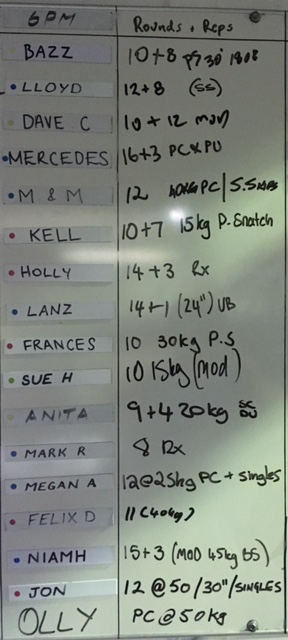 6PM Rounds + Reps
BAZZ 10+8 30" 180B
LLOYD 12+8 (SS)
DAVE C 10 + 12 mod
MERCEDES 16+3 PC x PU
M & M 12 40KG PC/5.5
KELL 10+7 15kg P. Snatch
HOLLY 14+3 Rx
LANZ 14+1 (24") UB
FRANCES 10 30kg P.S
SUE H 10 15kg (mod)
ANITA 9+4 20kg SC DU
MARK R 8 Rx
MEGAN A 12@25kg PC + singles
FELIX D 11 (40kg)
NIAMH 15+3 (MOD 45kg BS)
JON 12 @50/30"/SINGLES
OLLY PC@50kg